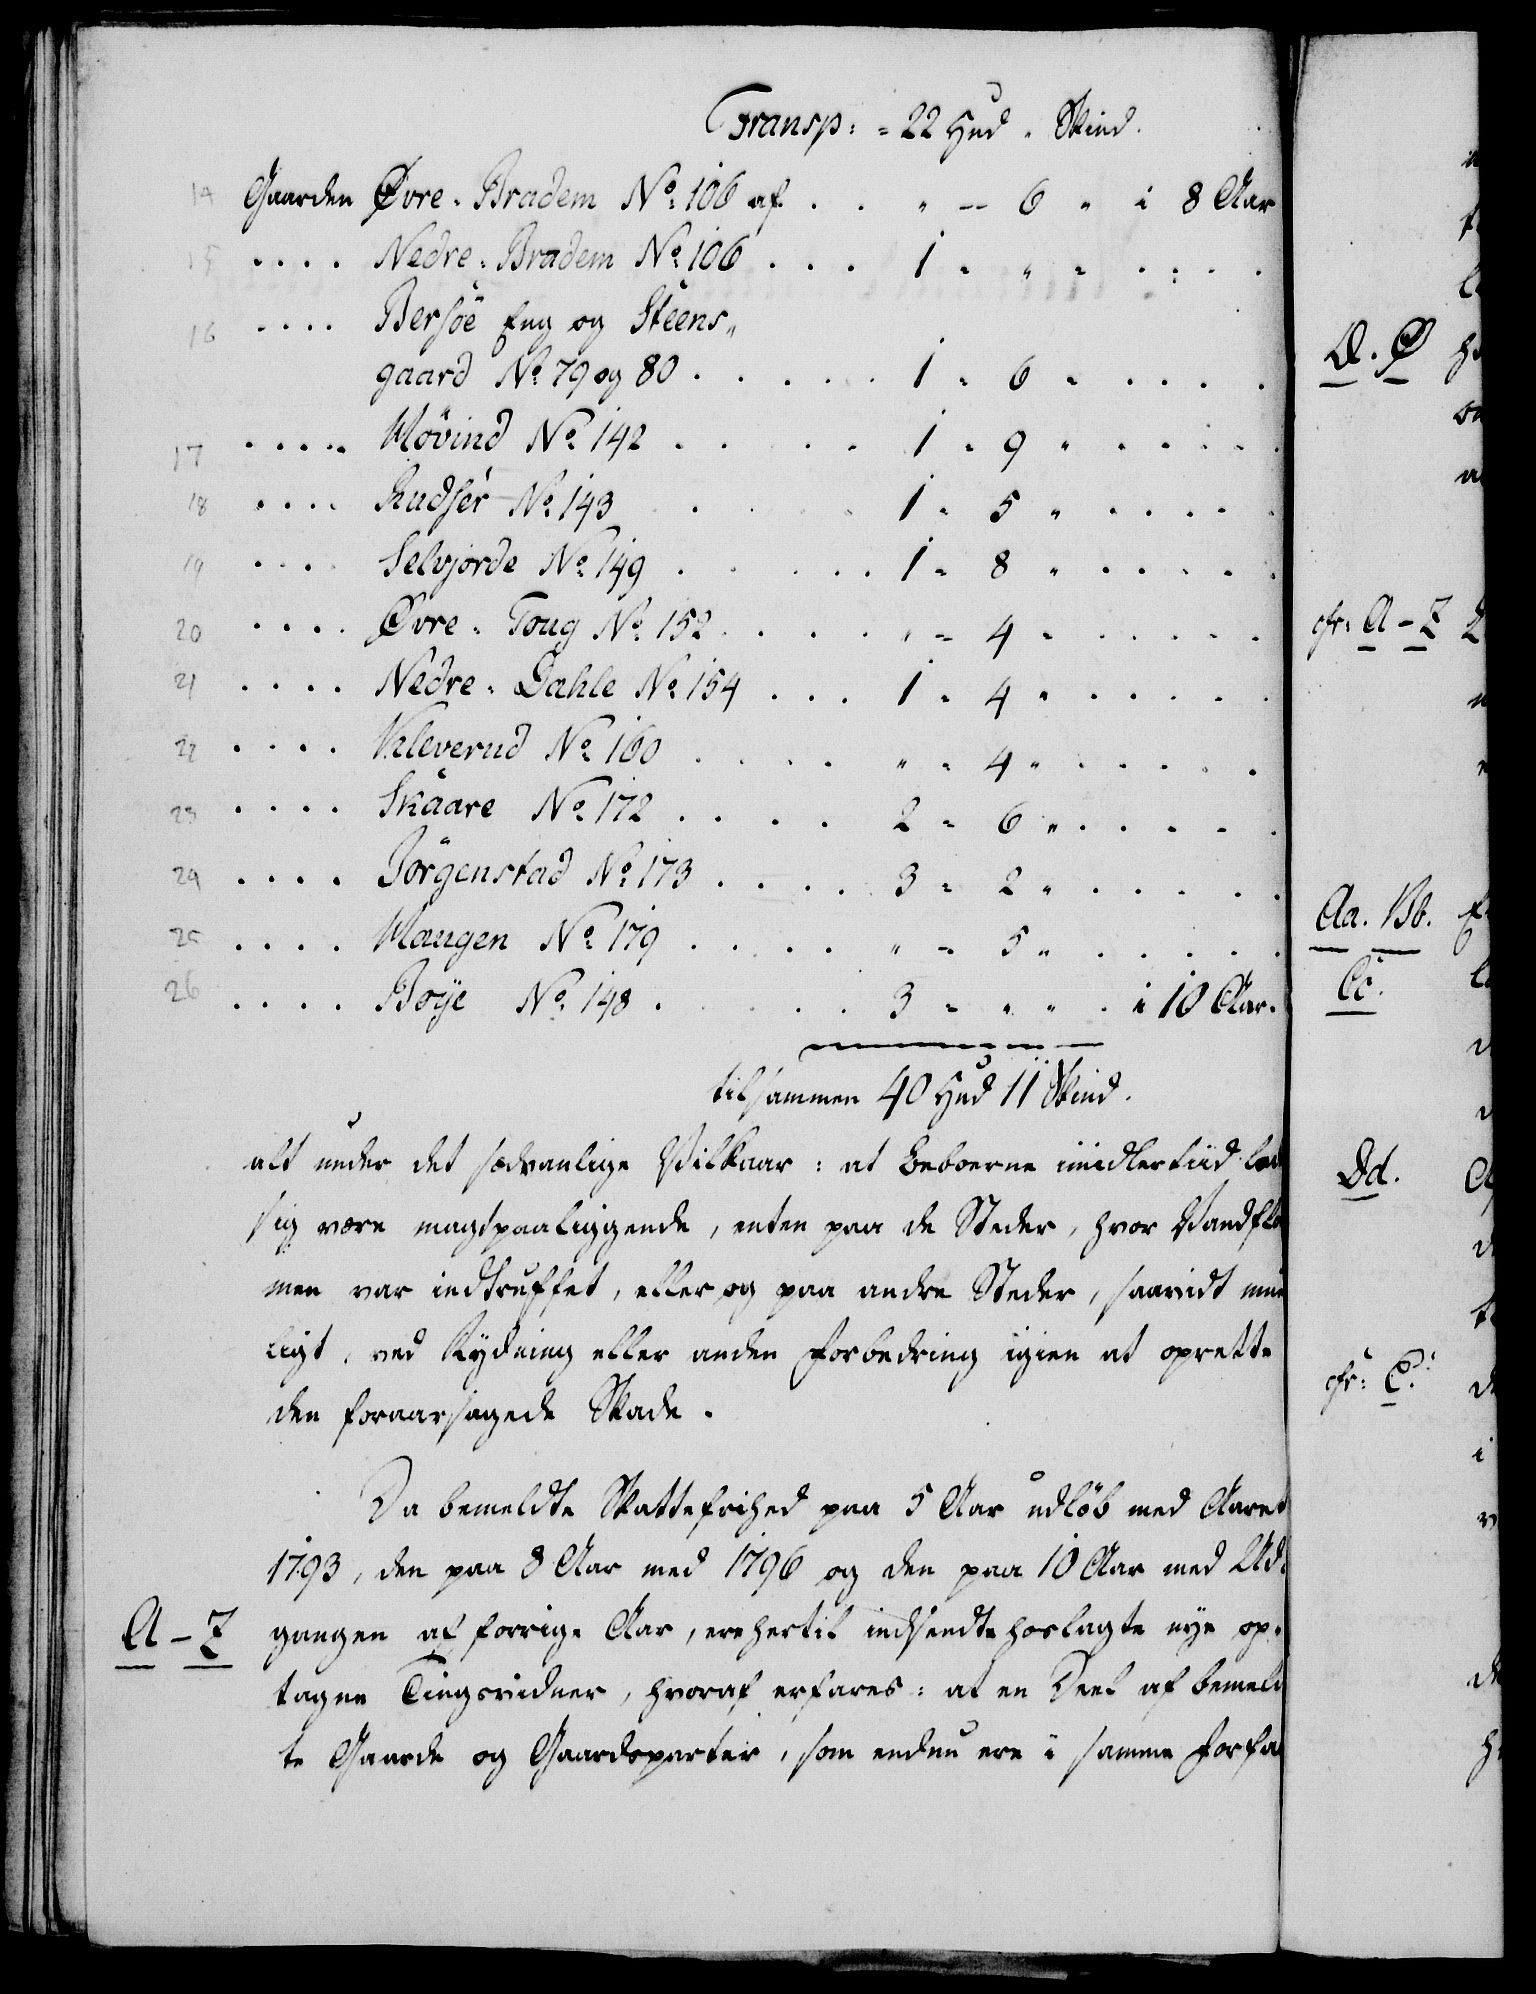 Transp: = 22 Hud " Skind.
14 Gaarden Øvre = Bradem No 106 af . . " — 6 " i 8 Aar
15 . . . . Nedre = Bradem No 106 . . . 1 = " = . . . .
16 . . . . Bersöe Eng og Steens=
gaard No 79 og 80 . . . . . 1 = 6 = . . . .
17 . . . . Mövind No 142 . . . . 1 = 9 " . . . .
18 . . . . Rudser No 143 . . . 1 = 5 " . . . .
19 . . . . Selvjorde No 149 . . . . 1 = 8 " . . . .
20 . . . . Øvre = Toug No 152 . . . . " = 4 = . . . .
21 . . . . Nedre = Dahle No 154 . . . 1 = 4 " . . . .
22 . . . . Kleverud No 160 . . . . " = 4 " . . . .
23 . . . . Skaare No 172 . . . . 2 = 6 " . . . .
24 . . . . Jörgenstad No 173 . . . . 3 = 2 " . . . .
25 . . . . Mangen No 179 . . . . " = 5 " . . . .
26 . . . . Böye No 148 . . . . 3 = " " . i 10 Aar.
tilsammen 40 Hud 11 Skind.
alt under det sædvanlige Vilkaar: at Beboerne imidlertiid lod
sig være magtpaaliggende, enten paa de Steder, hvor Vandflo
men var indtruffet, eller og paa andre Steder, saavidt mue
ligt, ved Rydning eller anden Forbedring igien at oprette
den foraarsagede Skade.
Da bemeldte Skattefrihed paa 5 Aar udlöb med Aaret
1793, den paa 8 Aar med 1796 og den paa 10 Aar med Ud=
A – Z gangen af forrige Aar, ere hertil indsendte hoslagte nye op=
tagne Tingsvidner, hvoraf erfares: at en Deel af bemeld
te Gaarde og Gaardsparter, som endnu ere i samme Forfa
Æ. Ø
cfr: A – Z
Aa. Bb.
Cc.
Dd.
cfr: C.